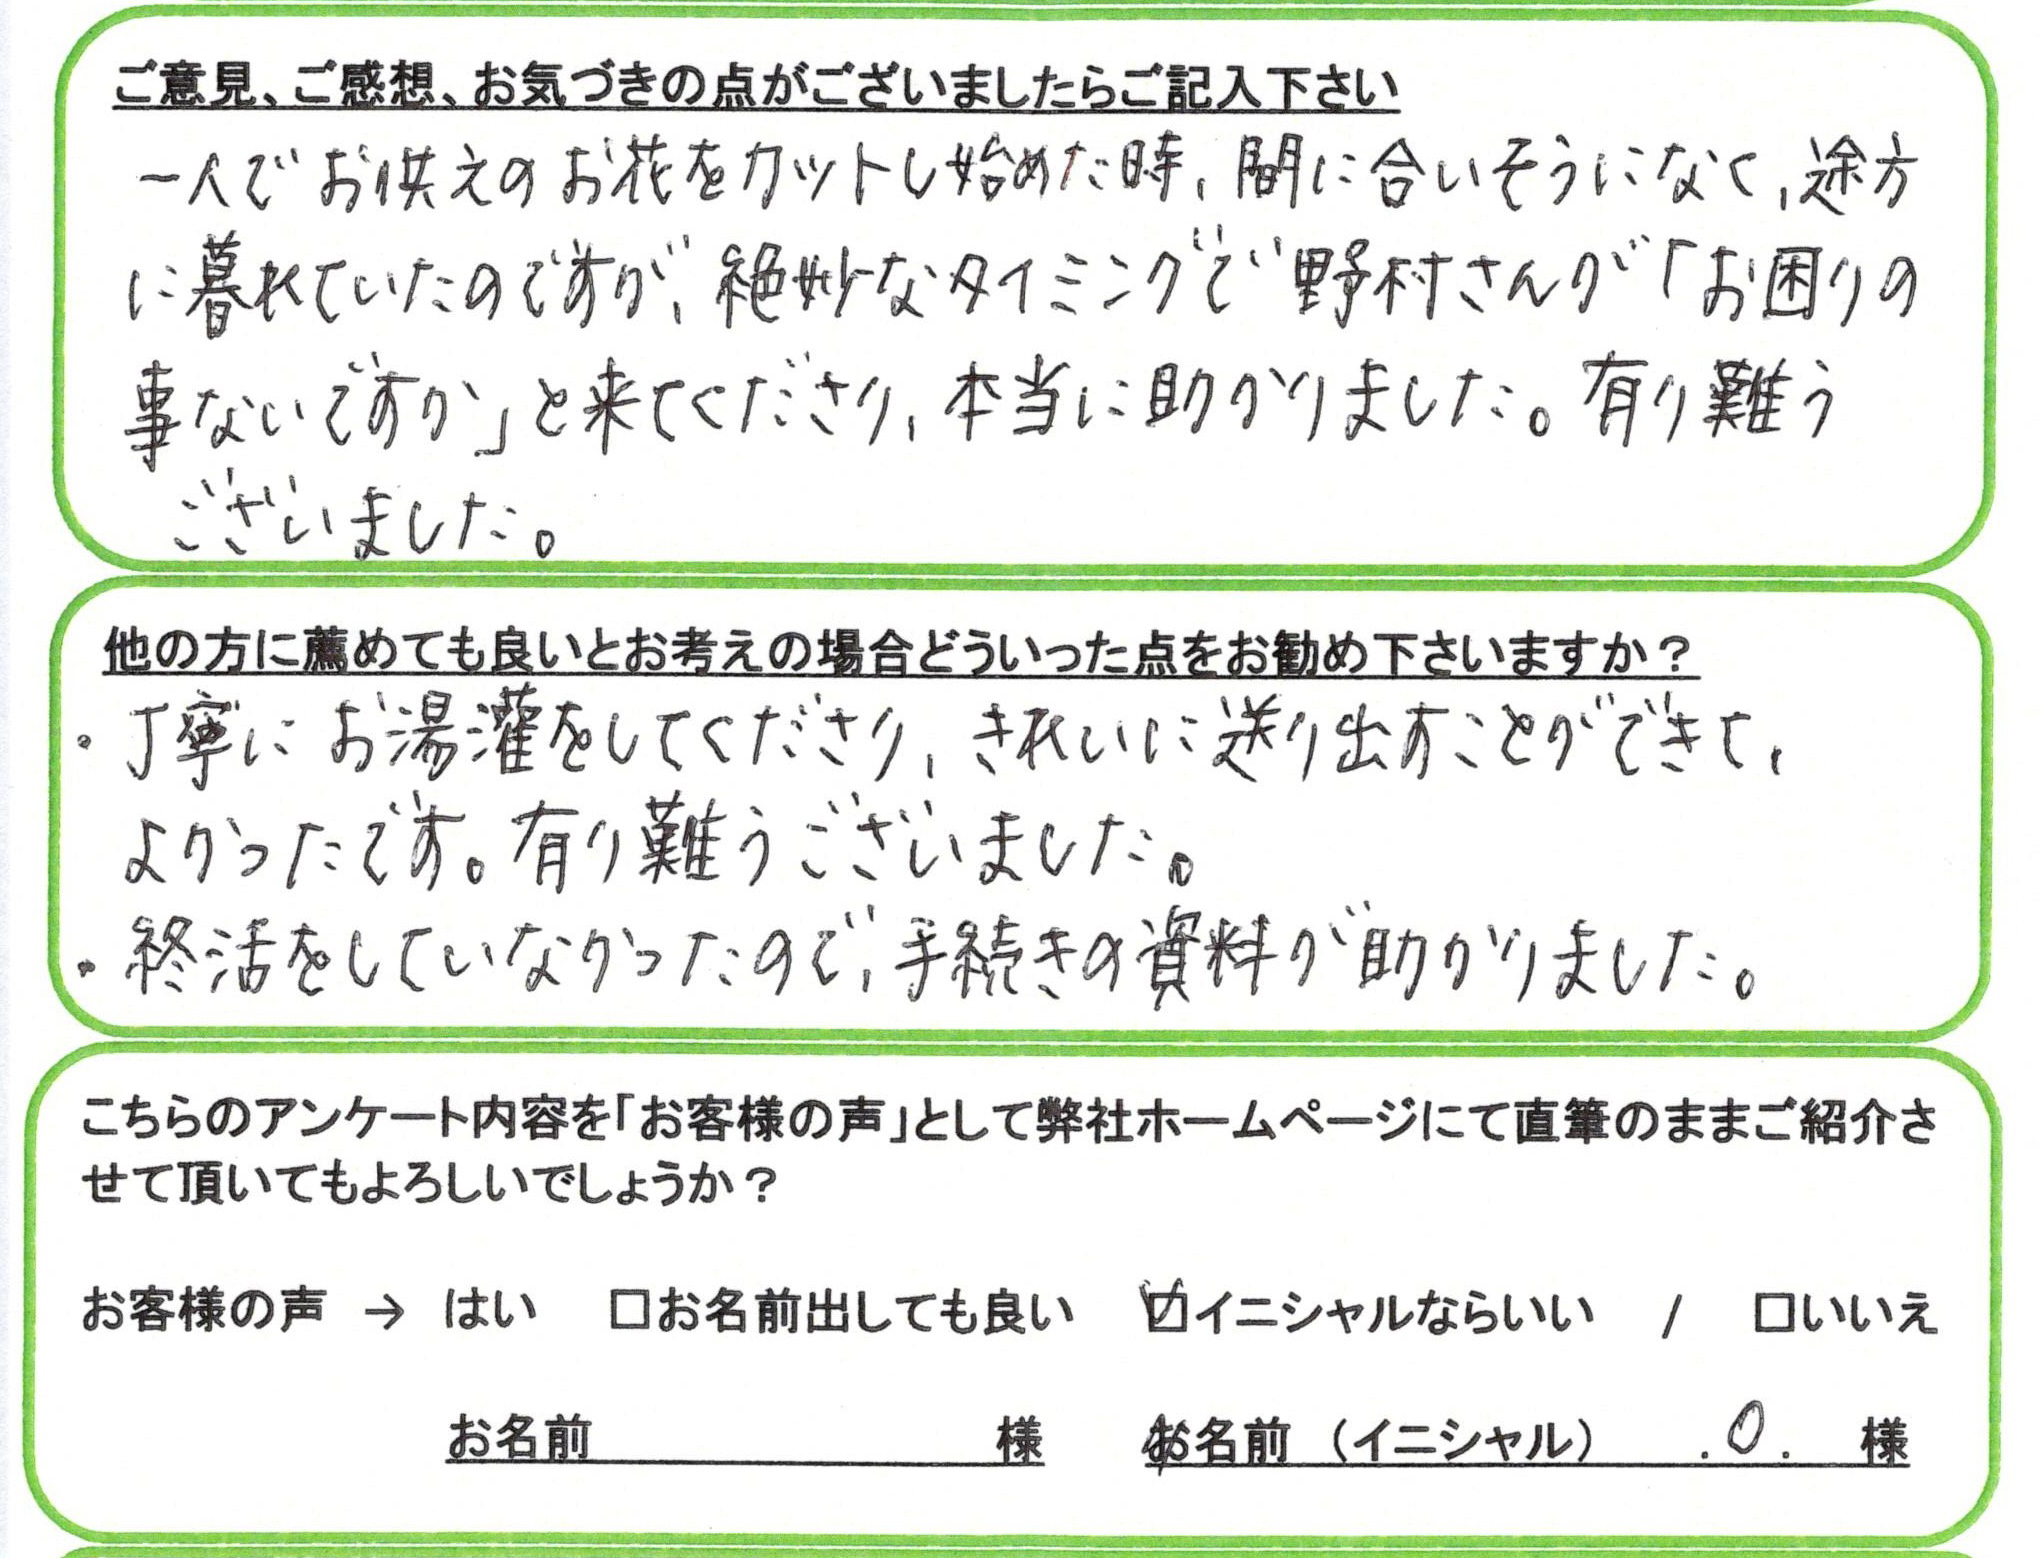 ご意見、ご感想、お気づきの点がございましたらご記入下さい
一人でお供えのお花をカットし始めた時、間に合いそうになく、途方
に暮れていたのですが、絶妙なタイミングで野村さんが「お困りの
事ないですか」と来てくださり、本当に助かりました。有り難う
ございました。
他の方に薦めても良いとお考えの場合どういった点をお勧め下さいますか？
・丁寧にお湯灌をしてくださり、きれいに送り出すことができて、
よかったです。有り難うございました。
・終活をしていなかったので、手続きの資料が助かりました。
こちらのアンケート内容を「お客様の声」として弊社ホームページにて直筆のままご紹介さ
せて頂いてもよろしいでしょうか？
お客様の声 → はい □お名前出しても良い ☑イニシャルならいい / □いいえ
お名前 様 お名前 （イニシャル） .O. 様